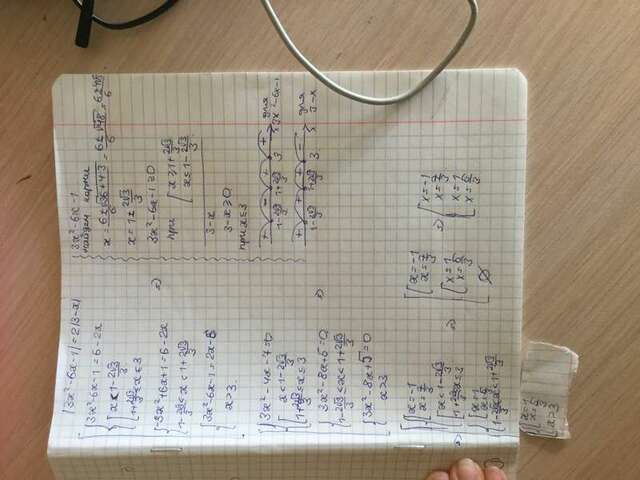 |3x²-6x-1|=2|3-x|
3x²-6x-1=6-2x
x<1-2√3/3
1+2√3/3≤x≤3
-3x²+6x+1=6-2x
1-2√3/3<x<1+2√3/3
3x²-6x-1=2x-6
x>3
3x²-4x-7=0
x<1-2√3/3
1+2√3/3≤x≤3
3x²-8x+5=0
1-2√3/3<x<1+2√3/3
3x²-8x+5=0
x>3
x=-1
x=7/3
x<1-2√3/3
1+2√3/3≤x≤3
x=1
x=5/3
1-2√3/3<x<1+2√3/3
x=1
x=5/3
x>3
3x²-6x-1
найдем корни
x=6±√36+4·3/6=6±√48/6=6±4√3/6
x=1±2√3/3
3x²-6x-1≥0
при
x≥1+2√3/3
x≤1-2√3/3
3-x
3-x≥0
при x≤3
+ - + +
для
1-2√3/3 1+2√3/3 3 x 3x²-6x-1
+ + + -
для
1-2√3/3 1+2√3/3 3 x 3-x
x=-1
x=7/3
x=1
x=5/3
∅
x=-1
x=7/3
x=1
x=5/3